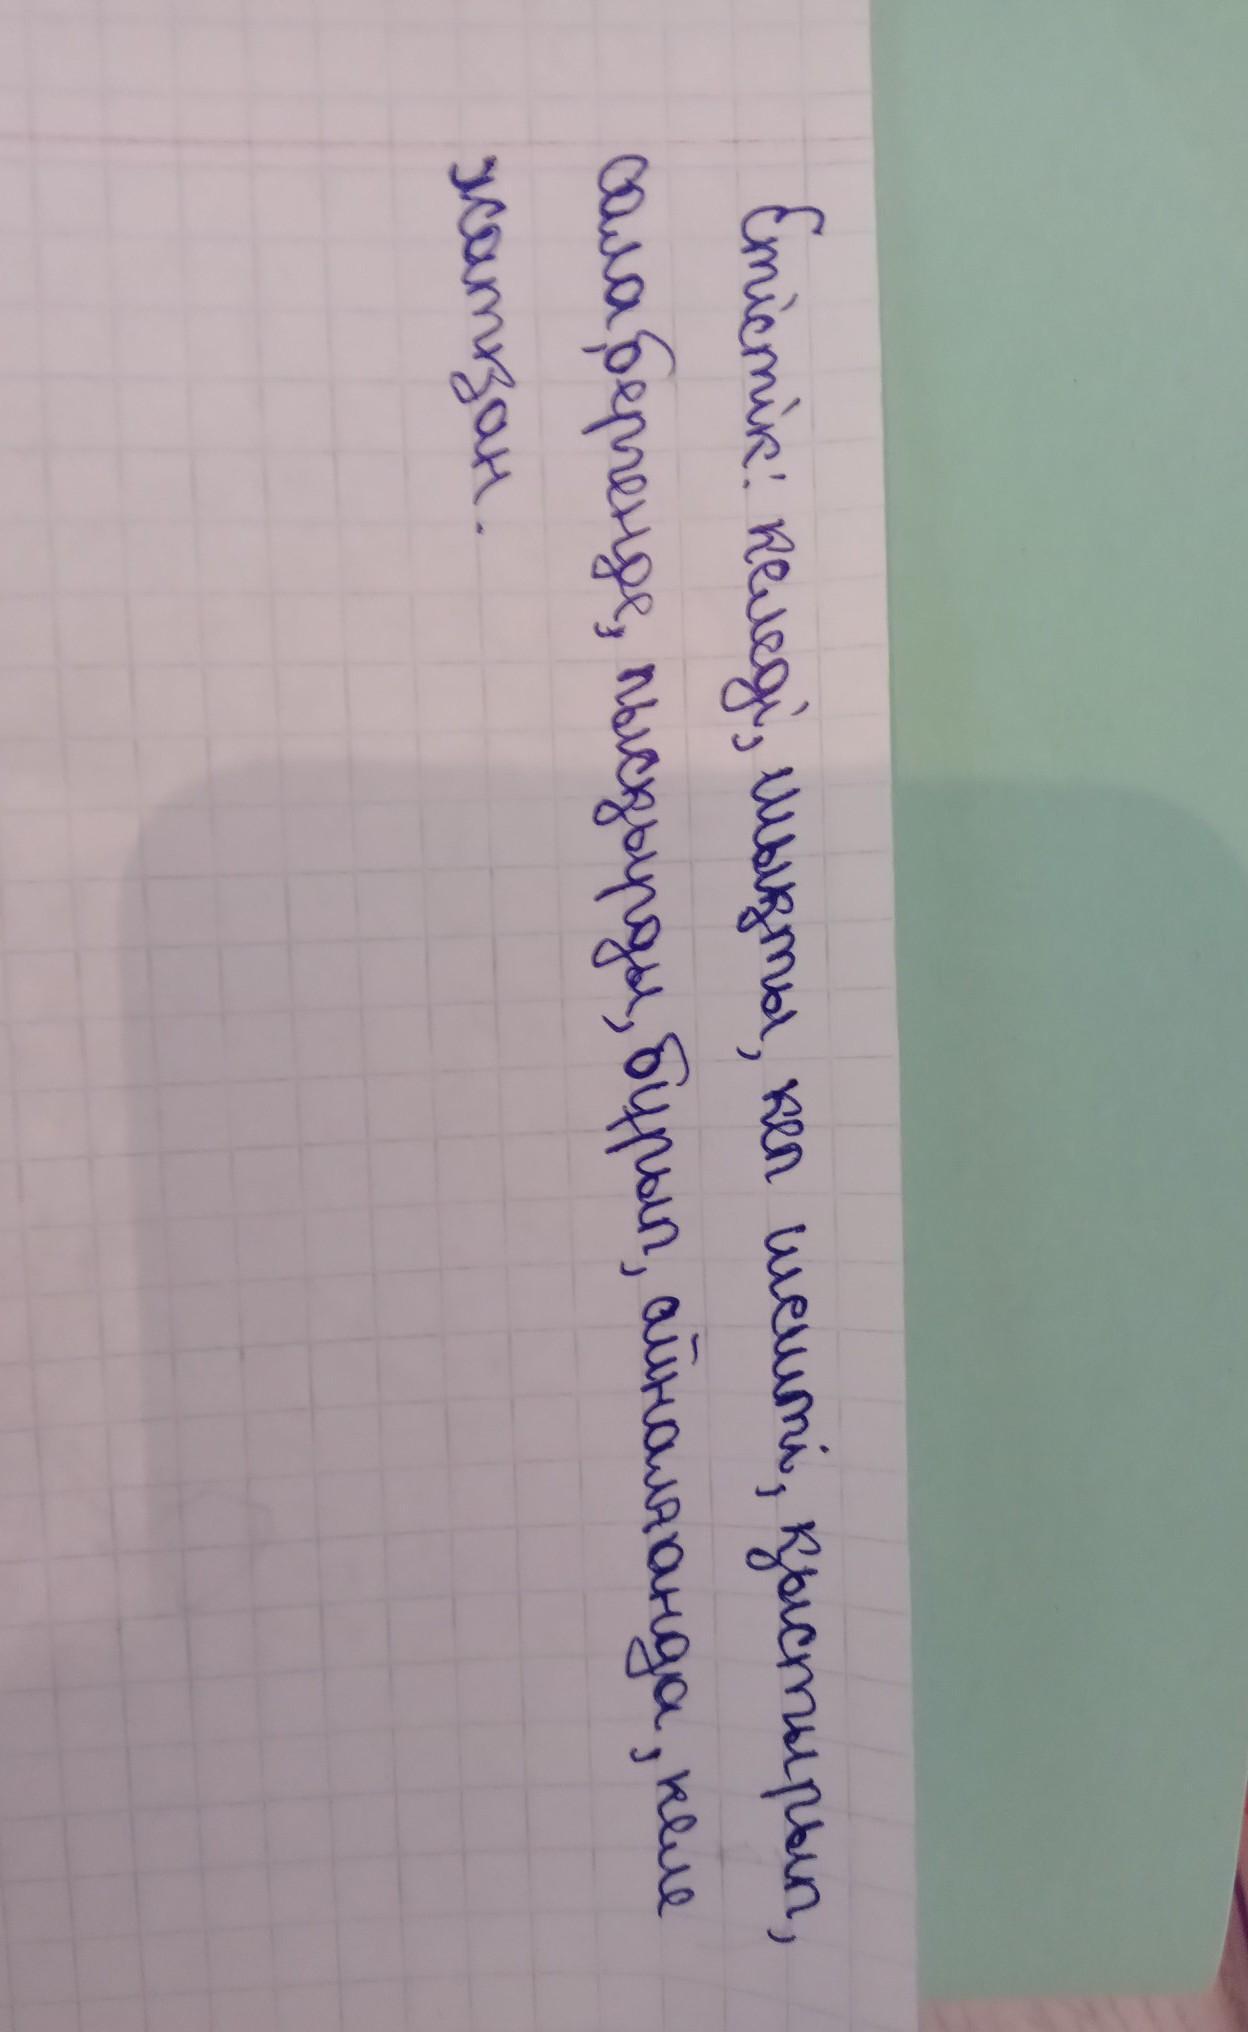 Етістік: келеді, шықты, кеп шешті, қыстырып,
сала бергенде, пысқырды, бұрып, айналғанда, келе
жатқан.